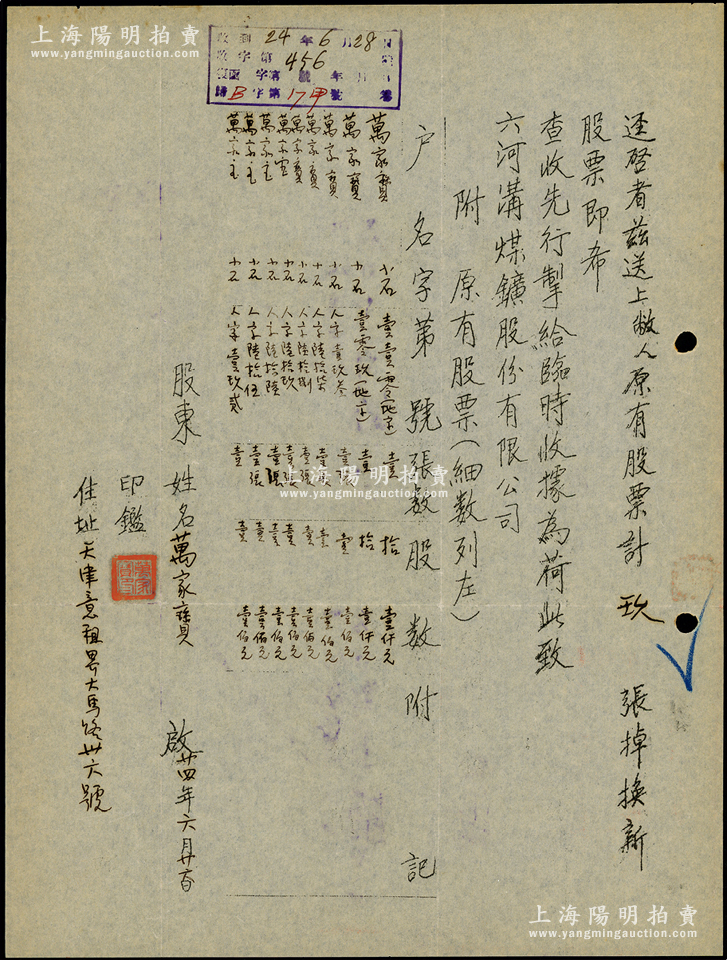 上海陽明拍賣
www.yangmingauction.com
收到 24 年 6 月 28 日
收字第 456 號
歸 B 字第 17甲 號 卷
逕啓者茲送上敝人原有股票計 玖 張掉換新
股票即希
查收先行掣給臨時收據為荷此致
六河溝煤鑛股份有限公司
附 原有股票(細數列左)
户名 字第號 張數 股數 附記
萬家寶 小石 壹壹零(地字) 壹 拾 壹仟元
萬家寶 小石 壹零玖(地字) 壹 拾 壹仟元
萬家寶 小石 人字壹玖叁 壹張 壹 壹佰元
萬家寶 小石 人字陸拾柒 壹張 壹 壹佰元
萬家寶 小石 人字陸拾捌 壹張 壹 壹佰元
萬家寶 小石 人字陸拾玖 壹張 壹 壹佰元
萬家宝 小石 人字陸拾陸 壹張 壹 壹佰元
萬家宝 小石 人字陸拾伍 壹張 壹 壹佰元
萬家宝 小石 人字壹玖贰 壹 壹 壹佰元
股東 姓名 萬家寶 啟 廿四年六月廿六日
印鑑
萬家寶章
住址 天津意租界大馬路卅六號
上海陽明拍賣
www.yangmingauction.com
上海陽明拍賣
www.yangmingauction.com